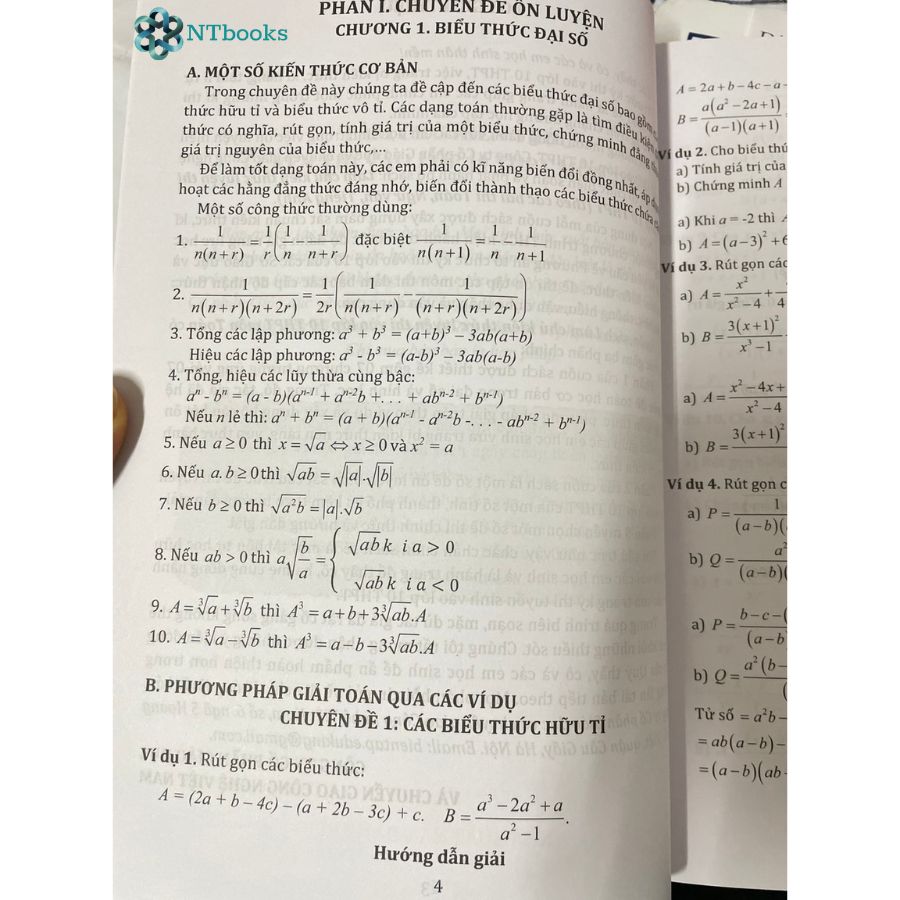 NTbooks
PHẦN I. CHUYÊN ĐỀ ÔN LUYỆN
CHƯƠNG 1. BIỂU THỨC ĐẠI SỐ
A. MỘT SỐ KIẾN THỨC CƠ BẢN
Trong chuyên đề này chúng ta đề cập đến các biểu thức đại số bao gồm
thức hữu tỉ và biểu thức vô tỉ. Các dạng toán thường gặp là tìm điều kiện
thức có nghĩa, rút gọn, tính giá trị của một biểu thức, chứng minh đẳng
giá trị nguyên của biểu thức,...
Để làm tốt dạng toán này, các em phải có kĩ năng biến đổi đồng nhất, áp
hoạt các hằng đẳng thức đáng nhớ, biến đổi thành thạo các biểu thức chứa
Một số công thức thường dùng:
1. 1/(n(n+r)) = 1/r(1/n − 1/(n+r)) đặc biệt 1/(n(n+1)) = 1/n − 1/(n+1)
2. 1/(n(n+r)(n+2r)) = 1/2r(1/(n(n+r)) − 1/((n+r)(n+2r)))
3. Tổng các lập phương: a³ + b³ = (a+b)³ – 3ab(a+b)
Hiệu các lập phương: a³ - b³ = (a-b)³ – 3ab(a-b)
4. Tổng, hiệu các lũy thừa cùng bậc:
aⁿ - bⁿ = (a - b)(aⁿ⁻¹ + aⁿ⁻²b +. . . + abⁿ⁻² + bⁿ⁻¹)
Nếu n lẻ thì: aⁿ + bⁿ = (a + b)(aⁿ⁻¹ - aⁿ⁻²b -. . . - abⁿ⁻² + bⁿ⁻¹)
5. Nếu a ≥ 0 thì x = √a ⇔ x ≥ 0 và x² = a
6. Nếu a.b ≥ 0 thì √(ab) = √|a|.√|b|
7. Nếu b ≥ 0 thì √(a²b) = |a|.√b
8. Nếu ab > 0 thì a√(b/a) = { √(ab) k i a > 0
√(ab) k i a < 0
9. A = ∛a + ∛b thì A³ = a + b + 3∛(ab).A
10. A = ∛a − ∛b thì A³ = a − b − 3∛(ab).A
B. PHƯƠNG PHÁP GIẢI TOÁN QUA CÁC VÍ DỤ
CHUYÊN ĐỀ 1: CÁC BIỂU THỨC HỮU TỈ
Ví dụ 1. Rút gọn các biểu thức:
A = (2a + b – 4c) – (a + 2b – 3c) + c. B = (a³ − 2a² + a)/(a² − 1).
Hướng dẫn giải
4
A = 2a + b − 4c − a
B = a(a² − 2a + 1)/((a − 1)(a + 1))
Ví dụ 2. Cho biểu thứ
a) Tính giá trị của
b) Chứng minh A
a) Khi a = -2 thì
b) A = (a − 3)² + 6
Ví dụ 3. Rút gọn các
a) A = x²/(x² − 4) +
b) B = 3(x + 1)²/(x³ − 1)
a) A = x² − 4x +/x² − 4
b) B = 3(x + 1)²
Ví dụ 4. Rút gọn c
a) P = 1/(a − b)(
b) Q = a²/(a − b)
a) P = b − c − (/(a − b
b) Q = a²(b −
Tử số = a²b −
= ab(a − b) −
= (a − b)(ab